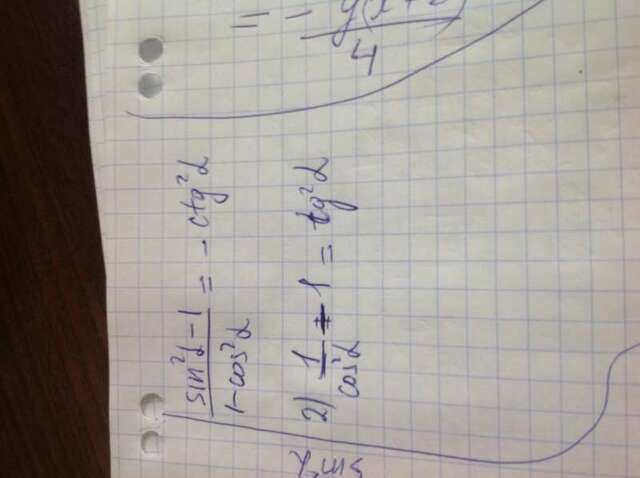 sin²α - 1 / 1 - cos²α = - ctg²α
2) 1 / cos²α - 1 = tg²α